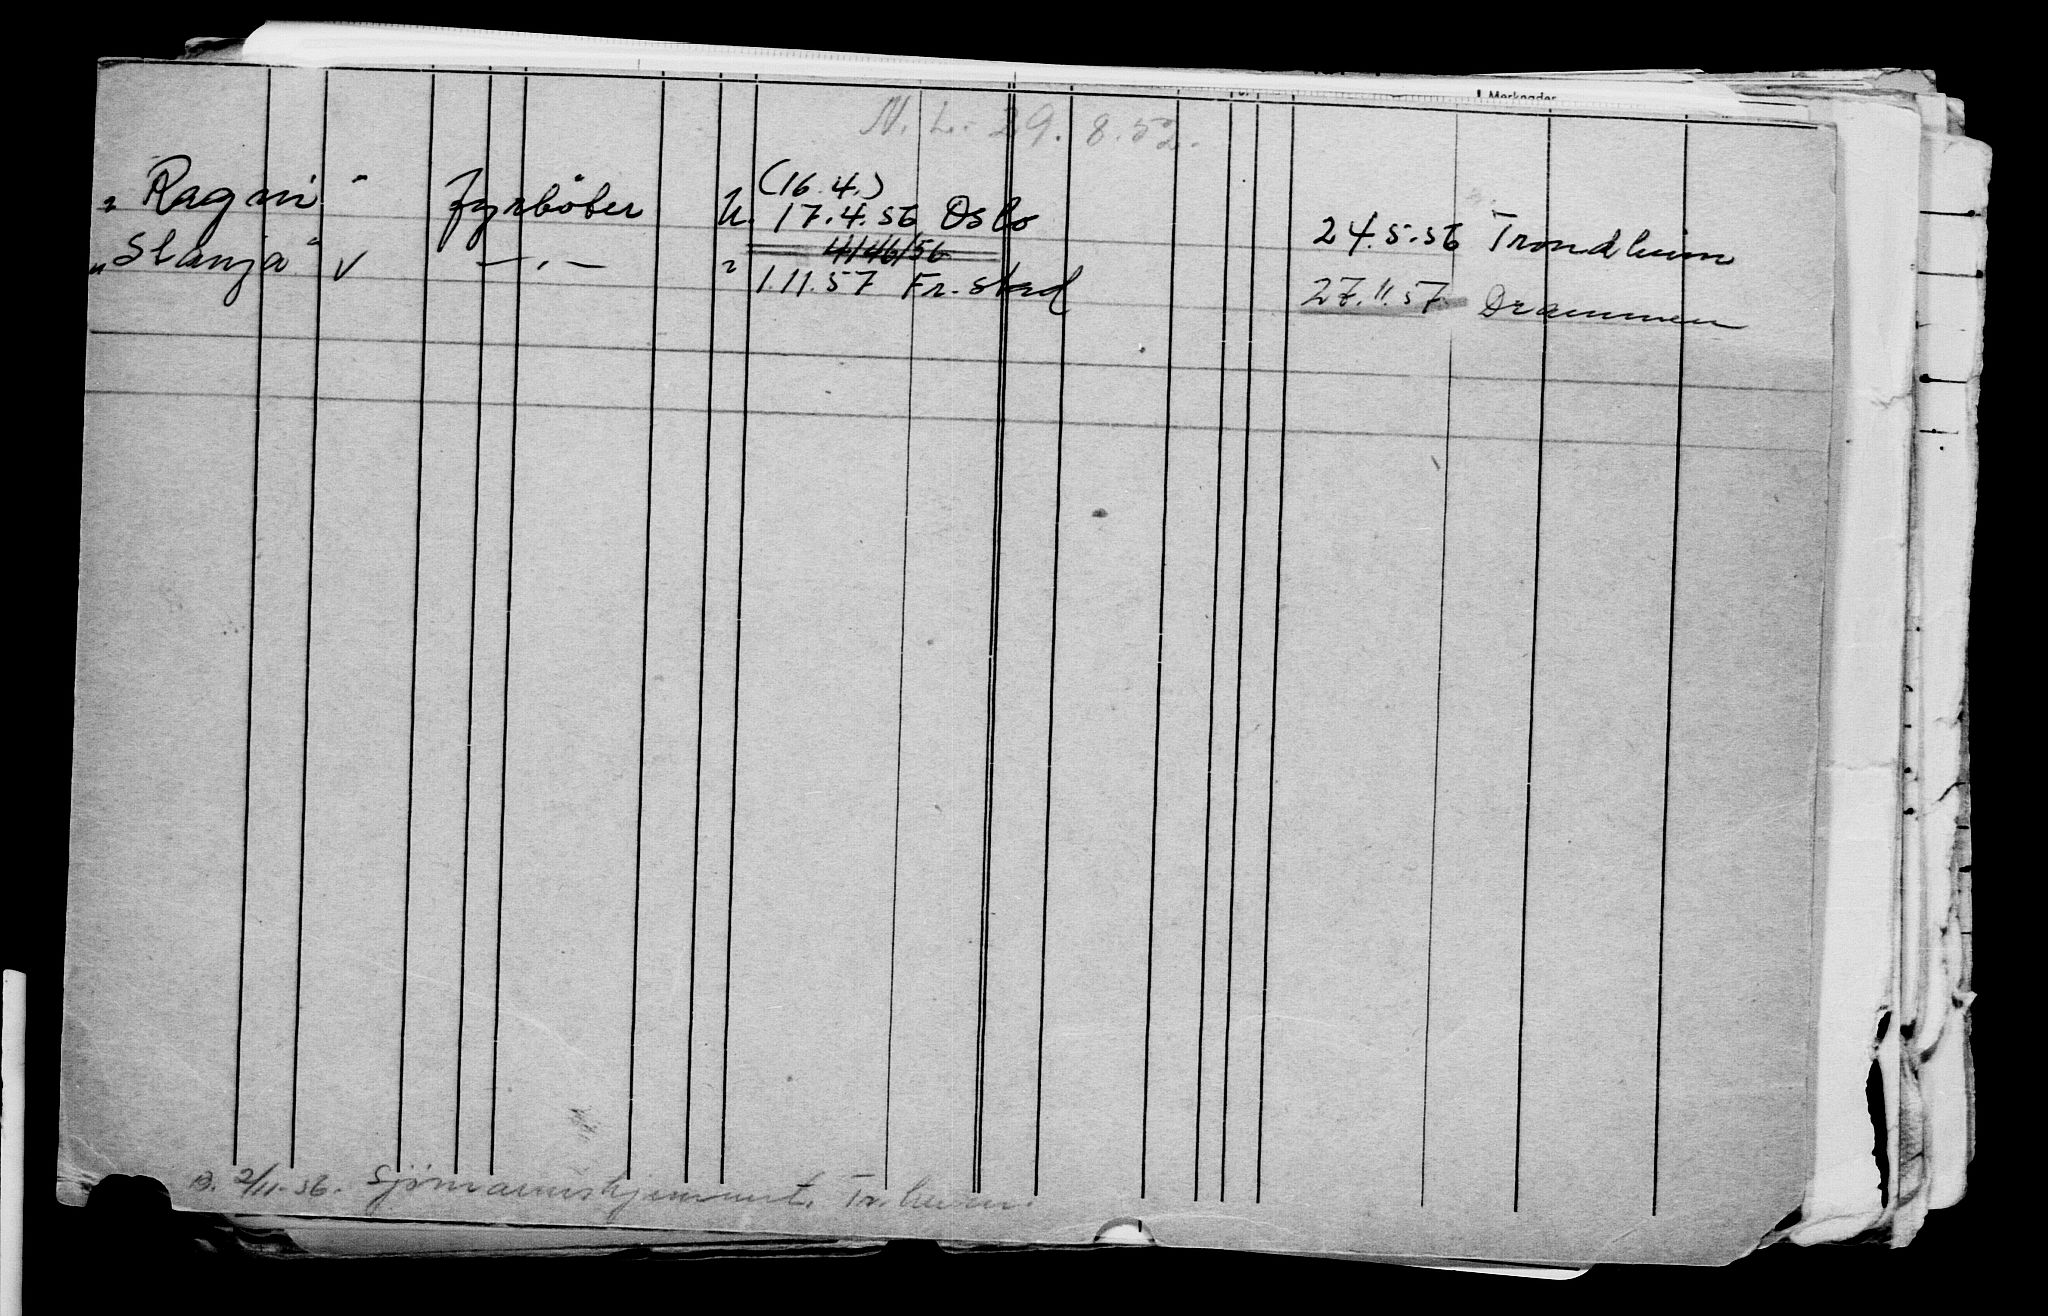 Merknader
N. L. - 29. 8. 52.
(16. 4.)
„Ragni" fyrböter U. 17. 4. 56 Oslo 24. 5. 56 Trondheim
4/46/56
„Slanja" √ — . — " 1. 11. 57 Fr. stad 27. 11. 57 Drammen
B. 2/11-56. Sjömannshjemmet. Tr. heim.